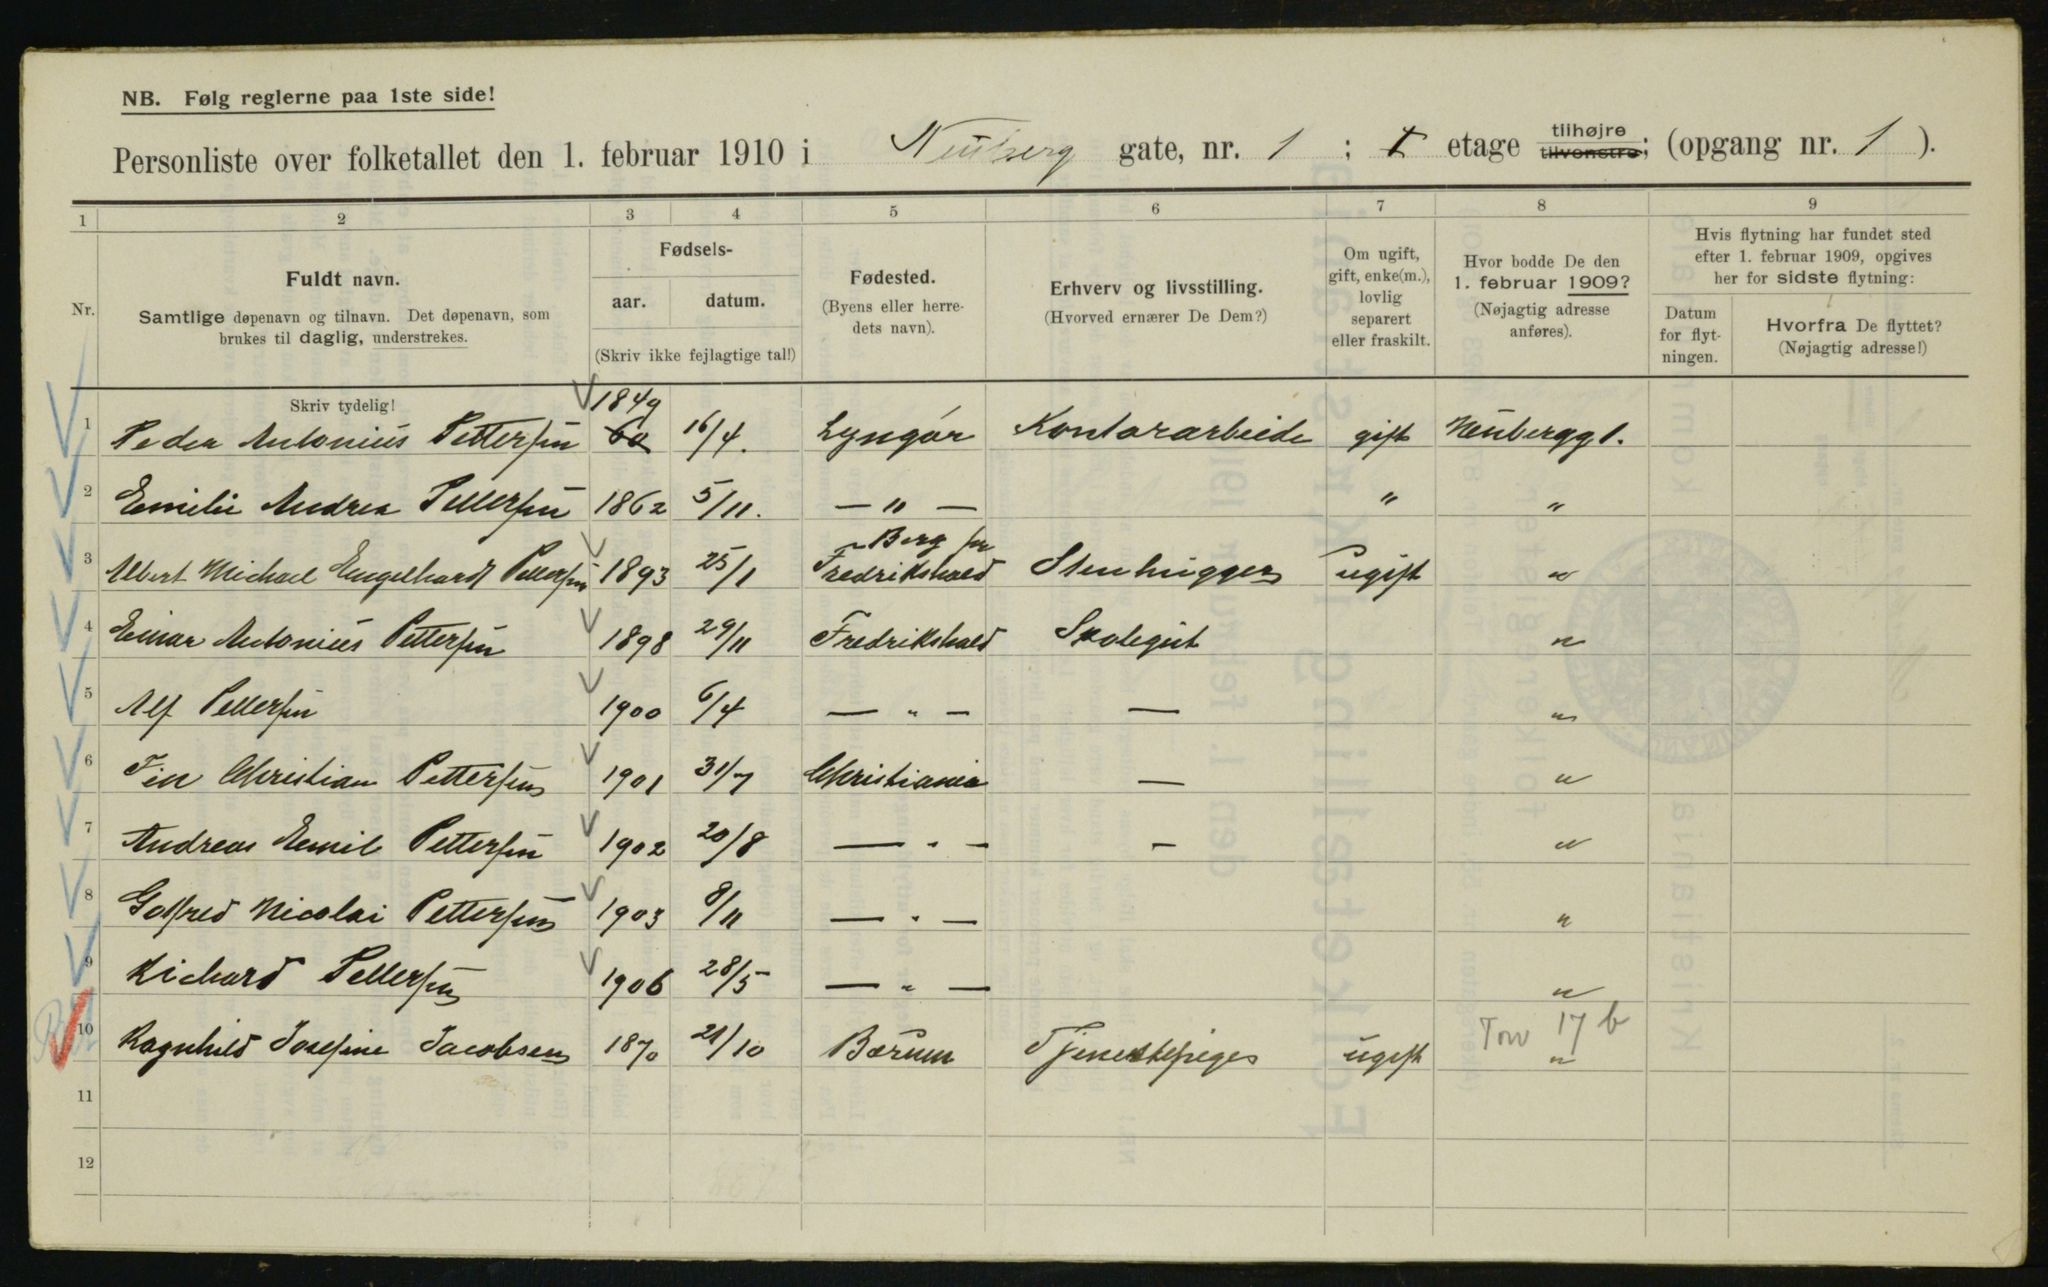 NB. Følg reglerne paa 1ste side!
Personliste over folketallet den 1. februar 1910 i Neuberg gate, nr. 1 ; 1 etage tilhøjre tilvenstre; (opgang nr. 1 ).
1 2 3 4 5 6 7 8 9
Nr.
Fuldt navn.
Samtlige døpenavn og tilnavn. Det døpenavn, som
brukes til daglig, understrekes.
Fødsels-
aar. datum.
(Skriv ikke fejlagtige tal!)
Fødested.
(Byens eller herre-
dets navn).
Erhverv og livsstilling.
(Hvorved ernærer De Dem?)
Om ugift,
gift, enke(m.),
lovlig
separert
eller fraskilt.
Hvor bodde De den
1. februar 1909?
(Nøjagtig adresse
anføres).
Hvis flytning har fundet sted
efter 1. februar 1909, opgives
her for sidste flytning:
Datum
for flyt-
ningen.
Hvorfra De flyttet?
(Nøjagtig adresse!)
Skriv tydelig!
1 Peder Antonius Pettersen 1849 60 16/4. Lyngør Kontorarbeide gift Neubergg 1.
2 Emilie Andrea Pettersen 1862 5/11. — " — " "
3 Albert Michael Engelhardt Pettersen 1893 25/1 Berg pr Fredrikshald Stenhugger ugift "
4 Einar Antonius Pettersen 1898 29/11 Fredrikshald Skolegut "
5 Alf Pettersen 1900 6/4 — " — — "
6 Finn Christian Pettersen 1901 31/7 Christiania — "
7 Andreas Emil Pettersen 1902 20/8 — " — - "
8 Gotfred Nicolai Pettersen 1903 8/11 — " — "
9 Richard Pettersen 1906 28/5 — " — "
10 Ragnhild Josefine Jacobsen 1870 21/10 Bærum Tjenestepige ugift Tov 17 b "
11
12